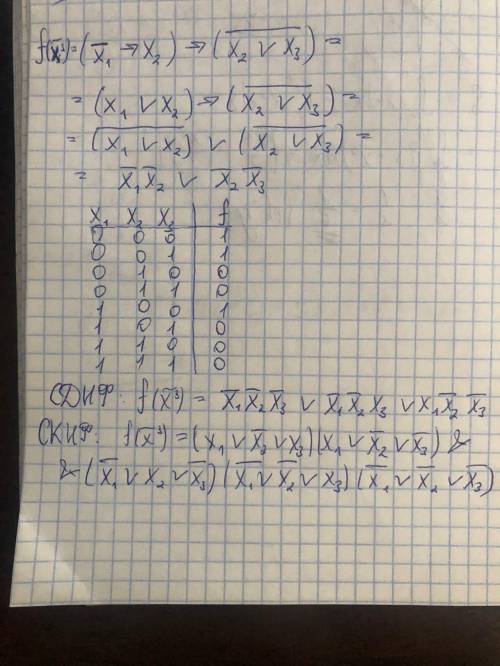 f(x̃³) = (x̄₁ → x₂) → (\overline{x₂ ∨ x₃}) =
= (x₁ ∨ x₂) → (\overline{x₂ ∨ x₃}) =
= (\overline{x₁ ∨ x₂}) ∨ (\overline{x₂ ∨ x₃}) =
= x̄₁ x̄₂ ∨ x̄₂ x̄₃
x₁ x₂ x₃ | f
0 0 0 | 1
0 0 1 | 1
0 1 0 | 0
0 1 1 | 0
1 0 0 | 1
1 0 1 | 0
1 1 0 | 0
1 1 1 | 0
СДНФ: f(x̃³) = x̄₁ x̄₂ x̄₃ ∨ x̄₁ x̄₂ x₃ ∨ x₁ x̄₂ x̄₃
СКНФ: f(x̃³) = (x₁ ∨ x̄₂ ∨ x₃)(x₁ ∨ x̄₂ ∨ x̄₃) &
& (x̄₁ ∨ x₂ ∨ x̄₃)(x̄₁ ∨ x̄₂ ∨ x₃)(x̄₁ ∨ x̄₂ ∨ x̄₃)